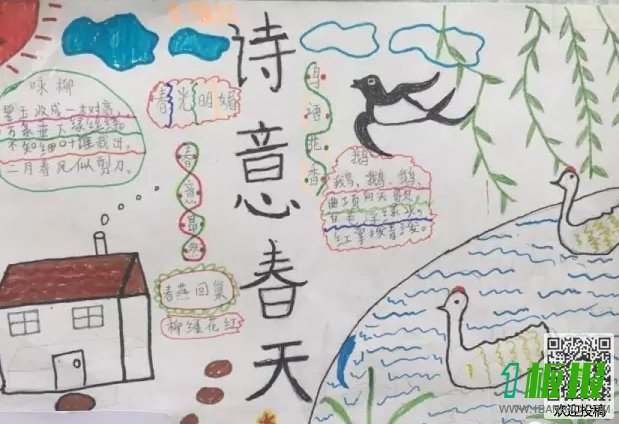 诗意春天
咏柳
碧玉妆成一树高，
万条垂下绿丝绦，
不知细叶谁裁出，
二月春风似剪刀。
春光明媚
春意盎然
春燕回巢
柳绿花红
鸟语花香
鹅
鹅，鹅，鹅，
曲项向天歌，
白毛浮绿水，
红掌拨清波。
1板报
欢迎投稿